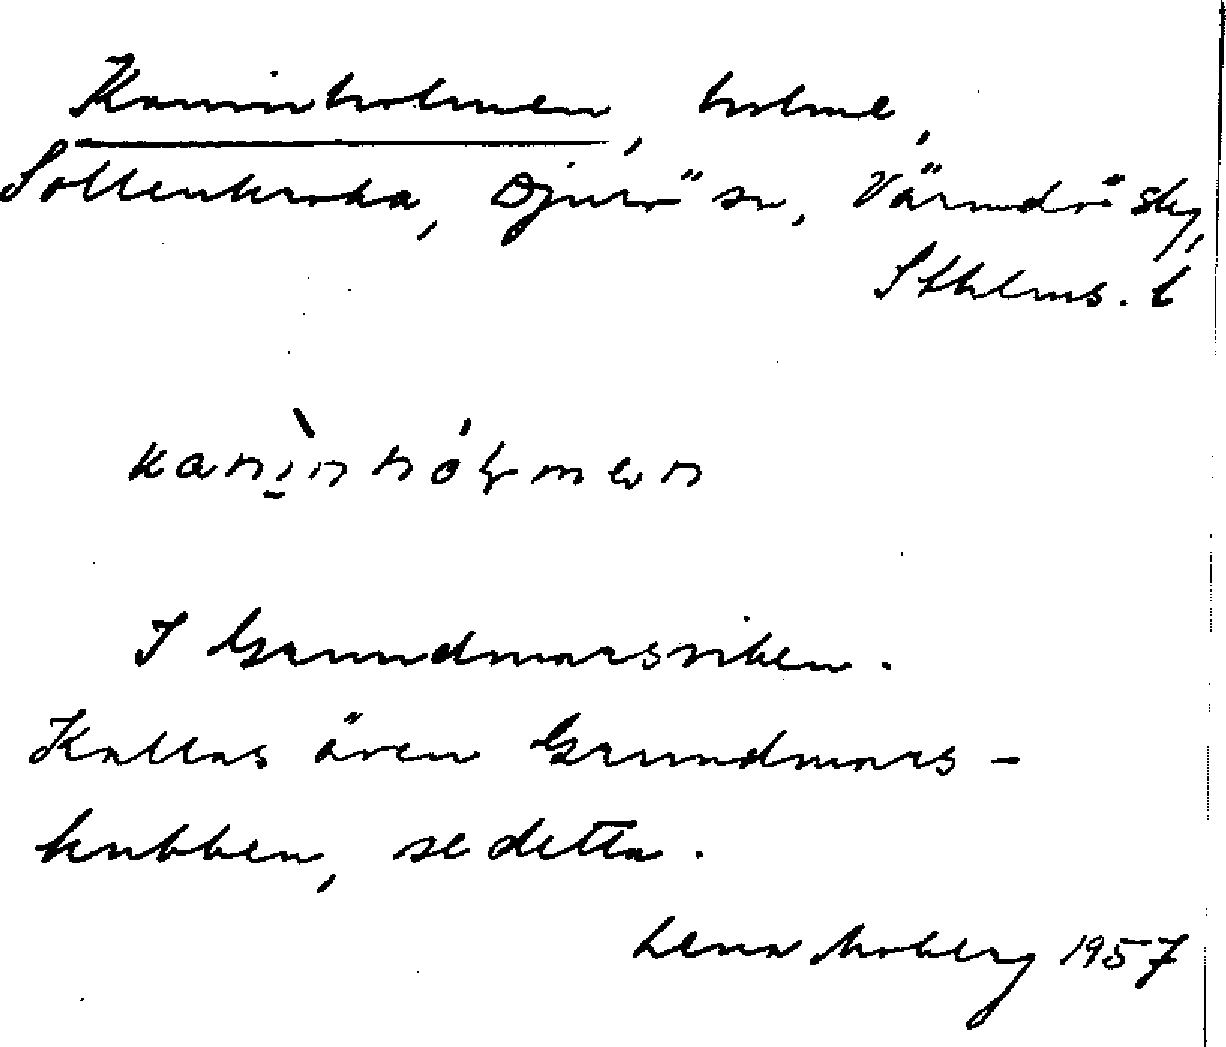 Kaninholmen, holme,
Sollenkroka, Djurö sn, Värmdö skg,
Sthlms. l
kanìnhólmen
I Grundmarsviken.
Kallas även Grundmars-
kubben, se detta.
Lena Moberg 1957